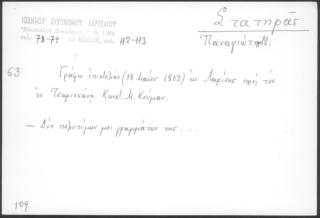 ΙΩΑΝΝΟΥ ΟΙΚΟΝΟΜΟΥ ΛΑΡΙΣΑΙΟΥ
"Επιστολαί Διαφόρων", 1964
σελ. 78-79 σελ. 112-113
Στατηρᾶς
Παναγιώτης
63
Γράφει ἐπιστολήν (18 1802) ἐκ Λαρίσης πρός τόν
ἐν Τσαριτσάνῃ Κωνστ. Μ. Κούμαν.
— Δύο πολυτίμων μοι γραμμάτων της . . .
109